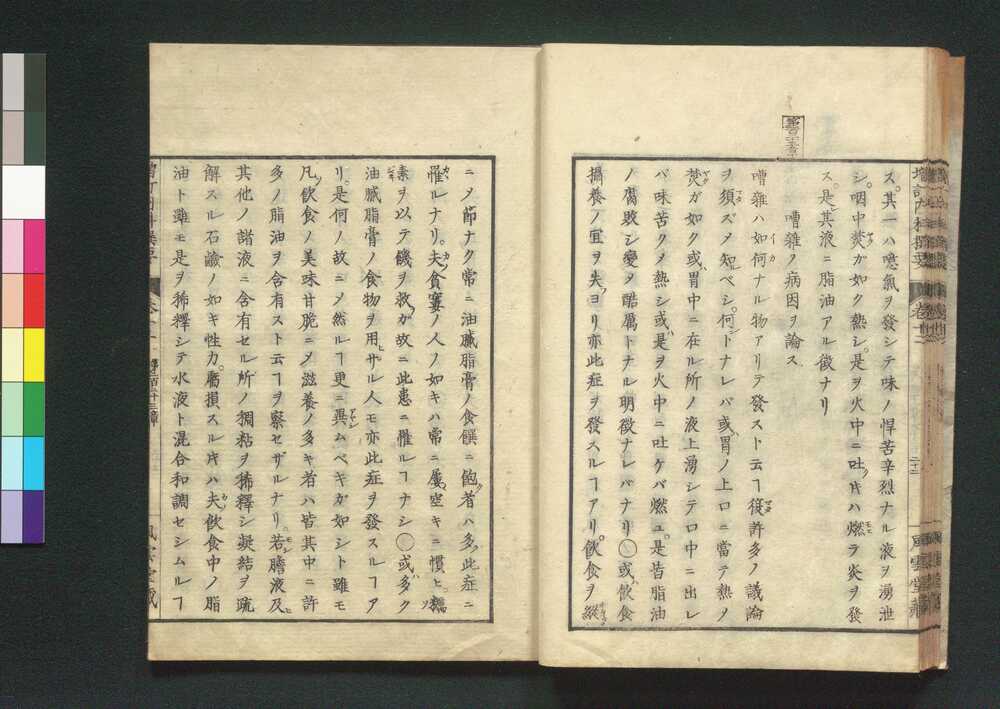 ス。其一ハ噫氣ヲ發シテ味ノ悍苦辛烈ナル液ヲ湧泄
シ。咽中焚ガ如ク熱シ。是ヲ火中ニ吐ノ片ハ燃ラ炎ヲ發
ス。是レ其液ニ脂油アル徴ナリ
嘈雜ノ病因ヲ論ス
嘈雜ハ如何ナル物アリテ發スト云フヿ從許多ノ議論
ヲ須ズノ知ベシ。何トナレバ或胃ノ上口ニ當テ熱ノ
焚ガ如ク或胃中ニ在ル所ノ液上湧シテ口中ニ出レ
バ味苦クメ熱シ或是ヲ火中ニ吐ケバ燃ユ。是皆脂油
ノ腐敗シ變メ酷厲トナル明徴ナレバナリ◯或飲食
攝養ノ宜ヲ失ヨリ亦此症ヲ發スルヿアリ。飲食ヲ縱
ニメ節ナク常ニ油膩脂膏ノ食饌ニ飽者ハ多此症ニ
罹ルナリ。夫貪窶ノ人ノ如キハ常ニ屢空キニ慣ヒ麤
素ヲ以テ饑ヲ救ガ故ニ此患ニ罹ルヿナシ◯或多ク
油膩脂膏ノ食物ヲ用ザル人モ亦此症ヲ發スルヿア
リ。是何ノ故ニメ然ルヿ更ニ異ムベキガ如シト雖モ
凡飲食ノ美味甘脆ニメ滋養ノ多キ者ハ皆其中ニ許
多ノ脂油ヲ含有スト云ヿヲ察セザルナリ。若膽液及
其他ノ諸液ニ含有セル所ノ稠粘ヲ稀釋シ凝結ヲ疏
解スル石鹼ノ如キ性力。腐損スル片ハ夫飲食中ノ脂
油ト雖モ是ヲ稀釋シテ水液ト混合和調セシムルヿ